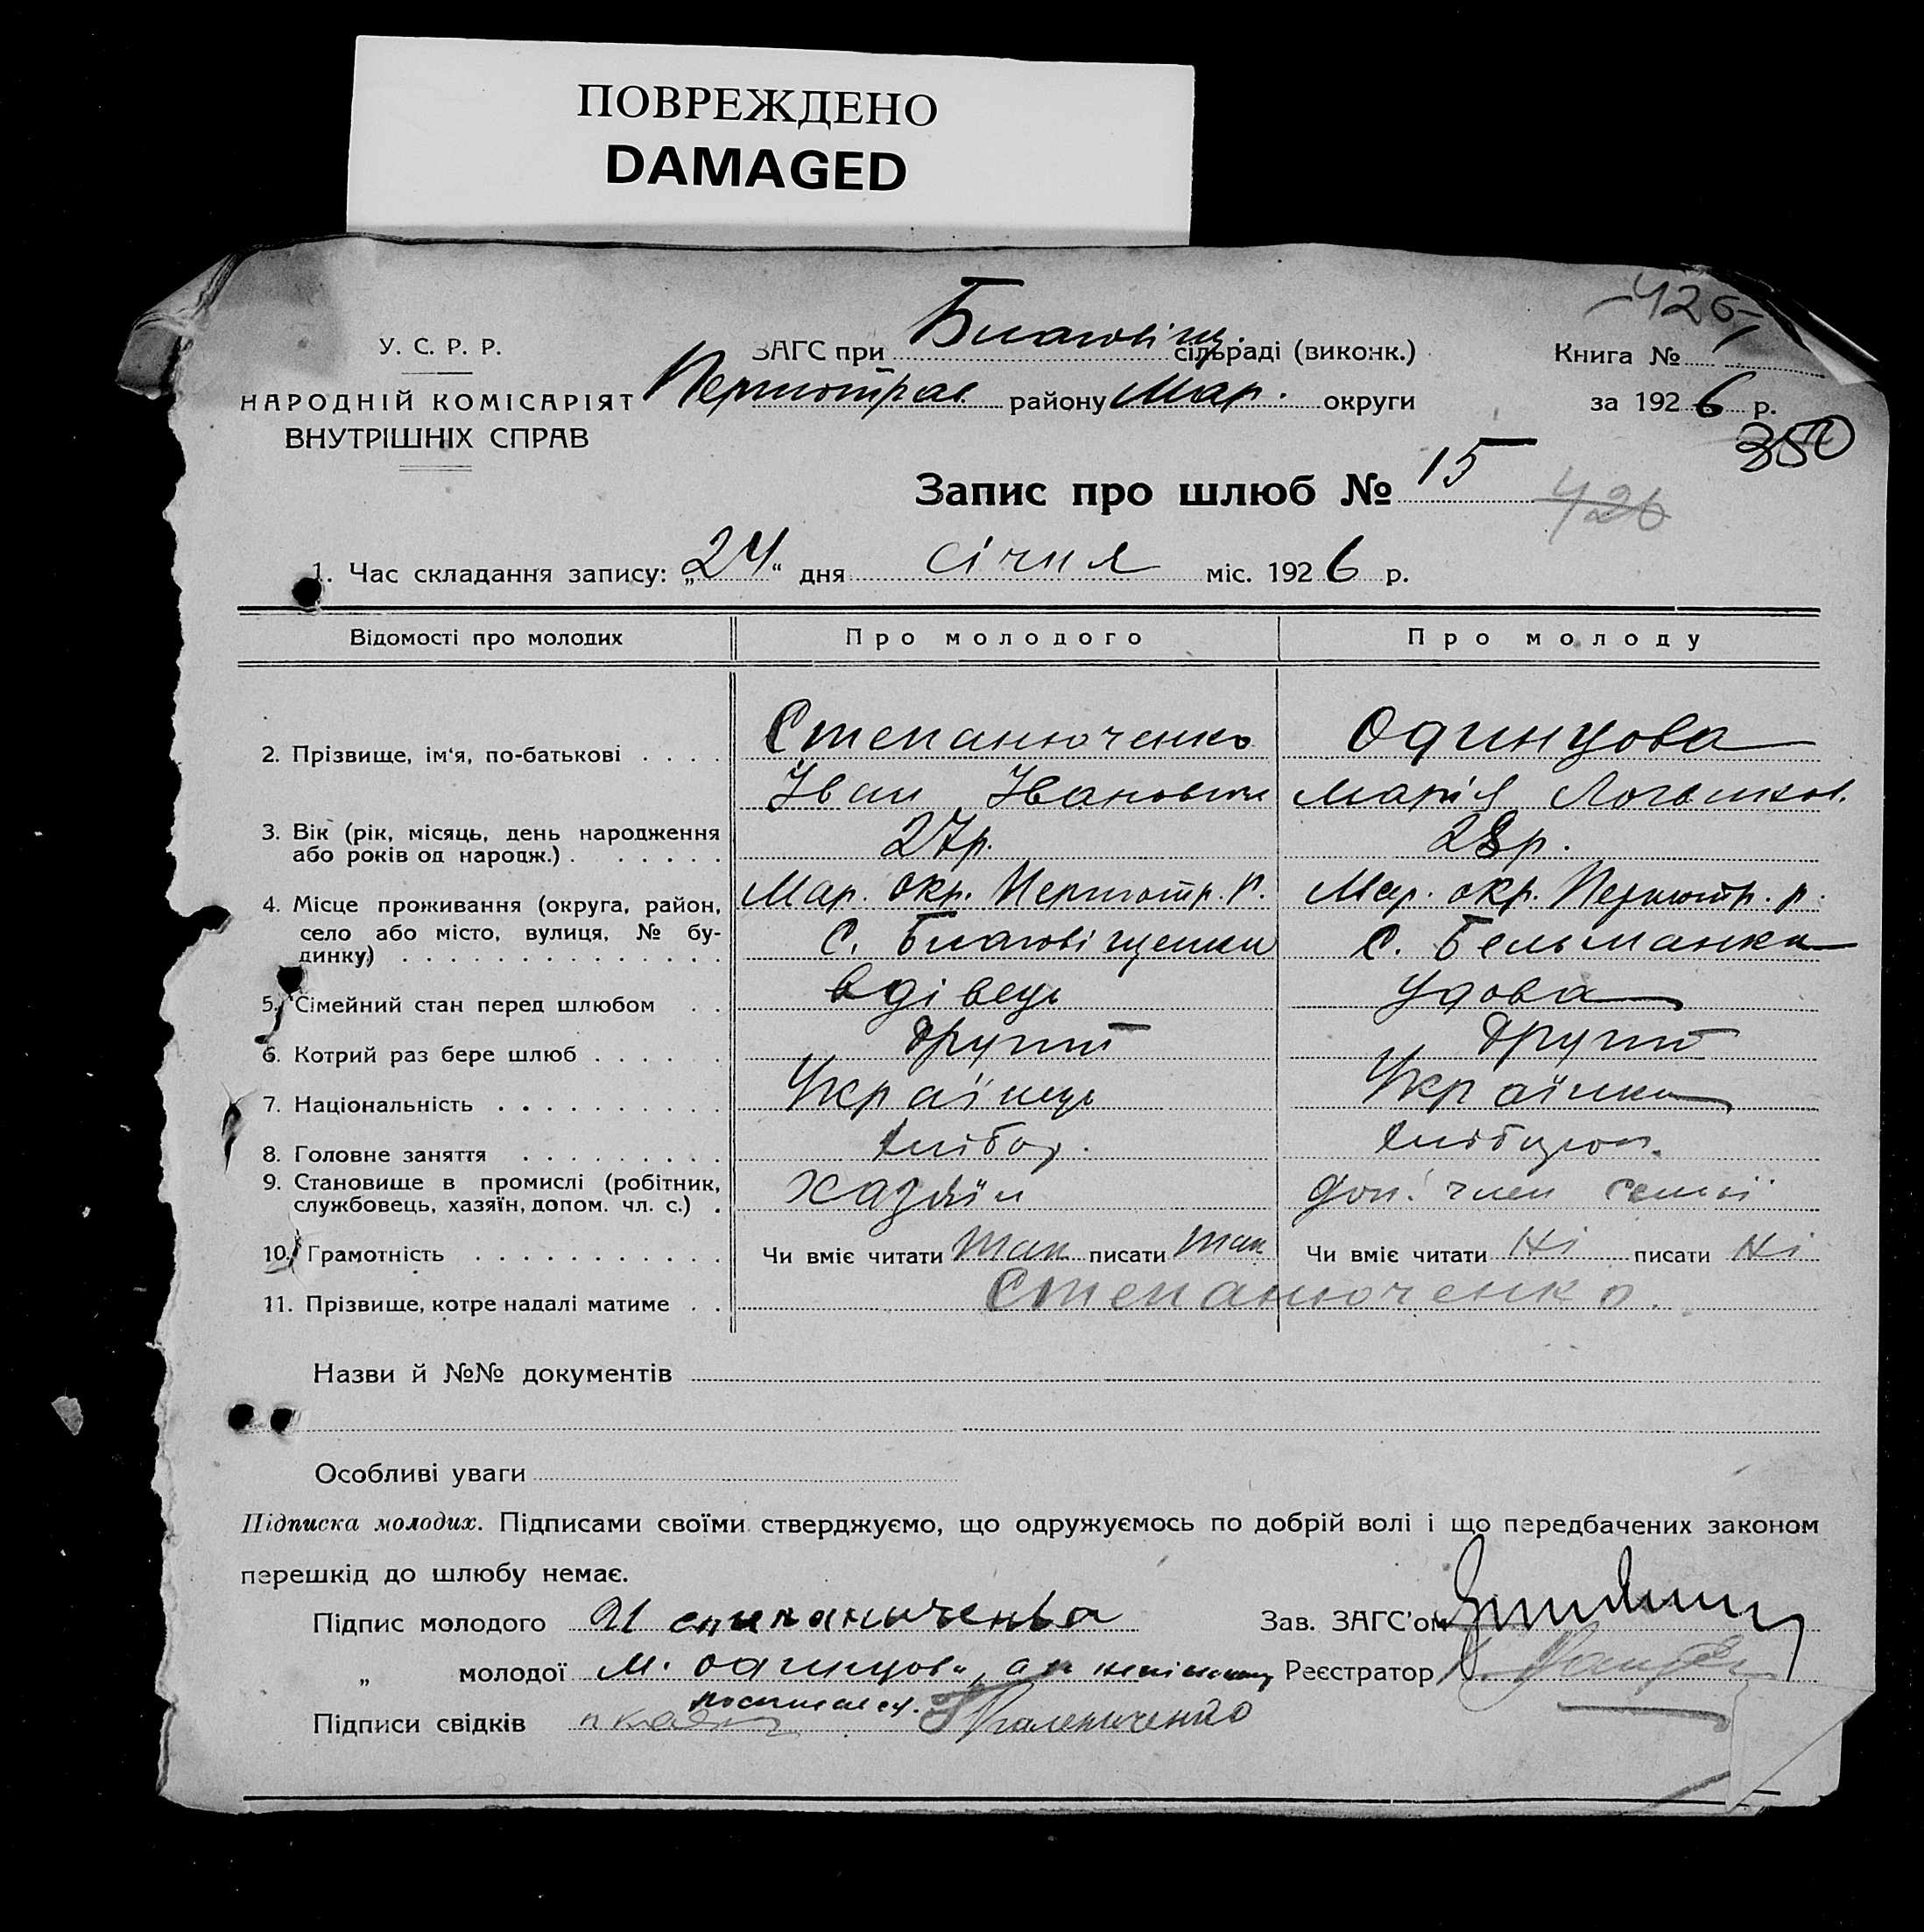 ПОВРЕЖДЕНО
DAMAGED
-426-
У. С. Р. Р.
НАРОДНІЙ КОМІСАРІЯТ
ВНУТРІШНІХ СПРАВ
ЗАГС при Благовіщ. сільраді (виконк.)
Першотрав району Мар. округи
Книга №
за 1926 р.
350
Запис про шлюб № 15
426
1. Час складання запису: „24“ дня січня міс. 1926 р.
Відомості про молодих Про молодого Про молоду
2. Прізвище, ім‘я, по-батькові . . . . Степанюченко Одинцова
Іван Іванович Марія
3. Вік (рік, місяць, день народження
або років од народж.) . . . . . . 27р. 28р.
4. Місце проживання (округа, район, Мар. окр. Першотр. р. Мар. окр. Першотр. р.
село або місто, вулиця, № бу- с. Благовіщенки с. Бельманка
динку) . . . . . . . . . . . . . .
5. Сімейний стан перед шлюбом . . вдівець удова
6. Котрий раз бере шлюб . . . . . . другий другий
7. Національність . . . . . . . . . Українець Українка
8. Головне заняття . . . . . . . . . хлібор. хлібороб.
9. Становище в промислі (робітник,
службовець, хазяїн, допом. чл. с.) . хазяїн доп. член семії
10. Грамотність . . . . . . . . . . . Чи вміє читати так писати так Чи вміє читати Ні писати Ні
11. Прізвище, котре надалі матиме . . Степанюченко.
Назви й №№ документів
Особливі уваги
Підписка молодих. Підписами своїми стверджуємо, що одружуємось по добрій волі і що передбачених законом
перешкід до шлюбу немає.
Підпис молодого И Зав. ЗАГС'ом
„ молодої М. Одинцова, Реєстратор
Підписи свідків